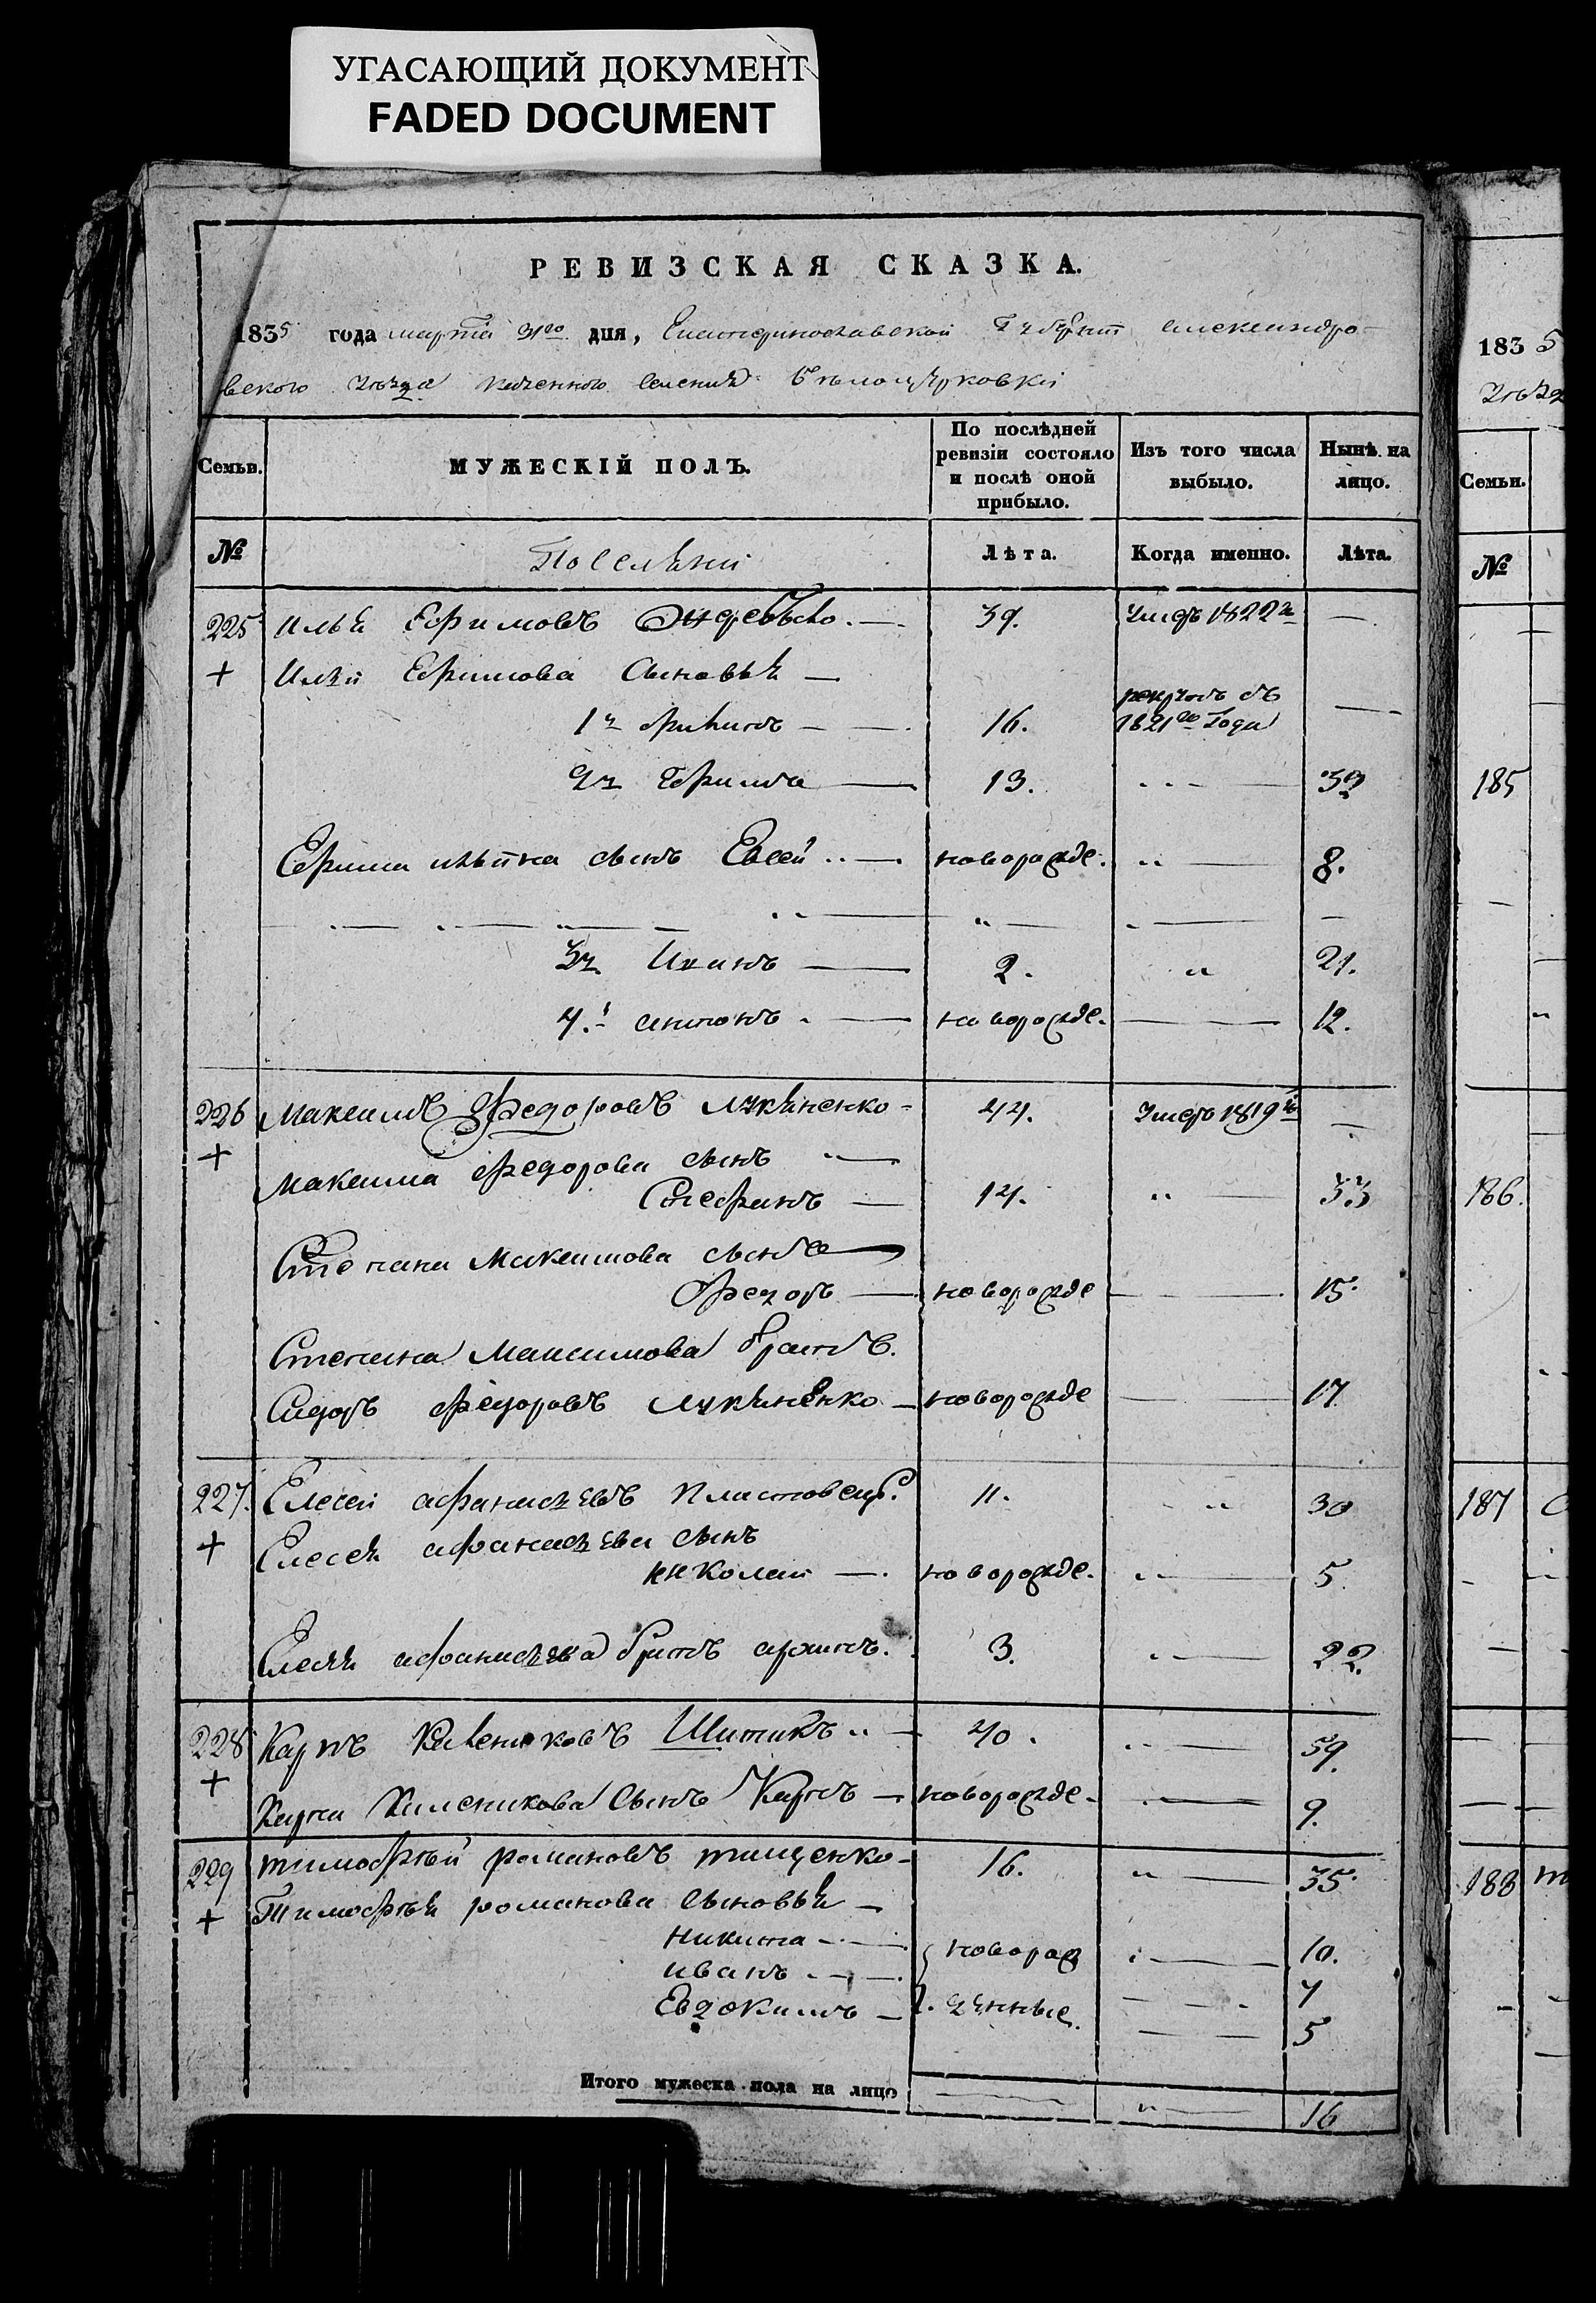 УГАСАЮЩИЙ ДОКУМЕНТ
FADED DOCUMENT
РЕВИЗСКАЯ СКАЗКА.
1835 года марта 31го дня, Екатеринославской Губернии Александро-
вского уезда казенного селения Беломцерковки
Семьи.
МУЖЕСКІЙ ПОЛЪ.
По послѣдней ревизіи состояло и послѣ оной прибыло.
Изъ того числа выбыло.
Нынѣ на лицо.
№
Поселяни
Лѣта.
Когда именно.
Лѣта.
225 Илья Ефимовъ 39. Умеръ 1822г —
+ Ильи Ефимова Сыновья —
1й 16. рекрутъ въ 1821го Года —
2й Ефимъ 13. 32
Ефима Ильина сынъ Евсей новорожде. 8.
3й Иванъ 2. 21.
4й антонъ новорожде. 12.
226 Максимъ Федоровъ Лукяненко 44. Умеръ 1819г —
+ Максима Федорова сынъ
Стефанъ 14. 33
Степана Максимова сынъ
Федоръ новорожде 15.
Степана Максимова братъ.
Сидоръ Федоровъ Лукяненко новорожде 17
227. Елесей афанасьевъ Пластовецъ. 11. 30
+ Елесея афанасьева сынъ
николай новорожде. 5.
Елесея афанасьева братъ архипъ. 3. 22.
228 Карпъ Калениковъ 40. 59.
+ Карпа Каленикова Сынъ Карпъ новорожде. 9.
229 тимофѣй романовъ тищенко 16. 35.
+ Тимофѣя романова Сыновья
никита новорож 10.
иванъ 7
Евдокимъ денные. 5
Итого мужеска пола на лицо 16
183 5
Уезд
Семьи.
№
185
186.
187
188